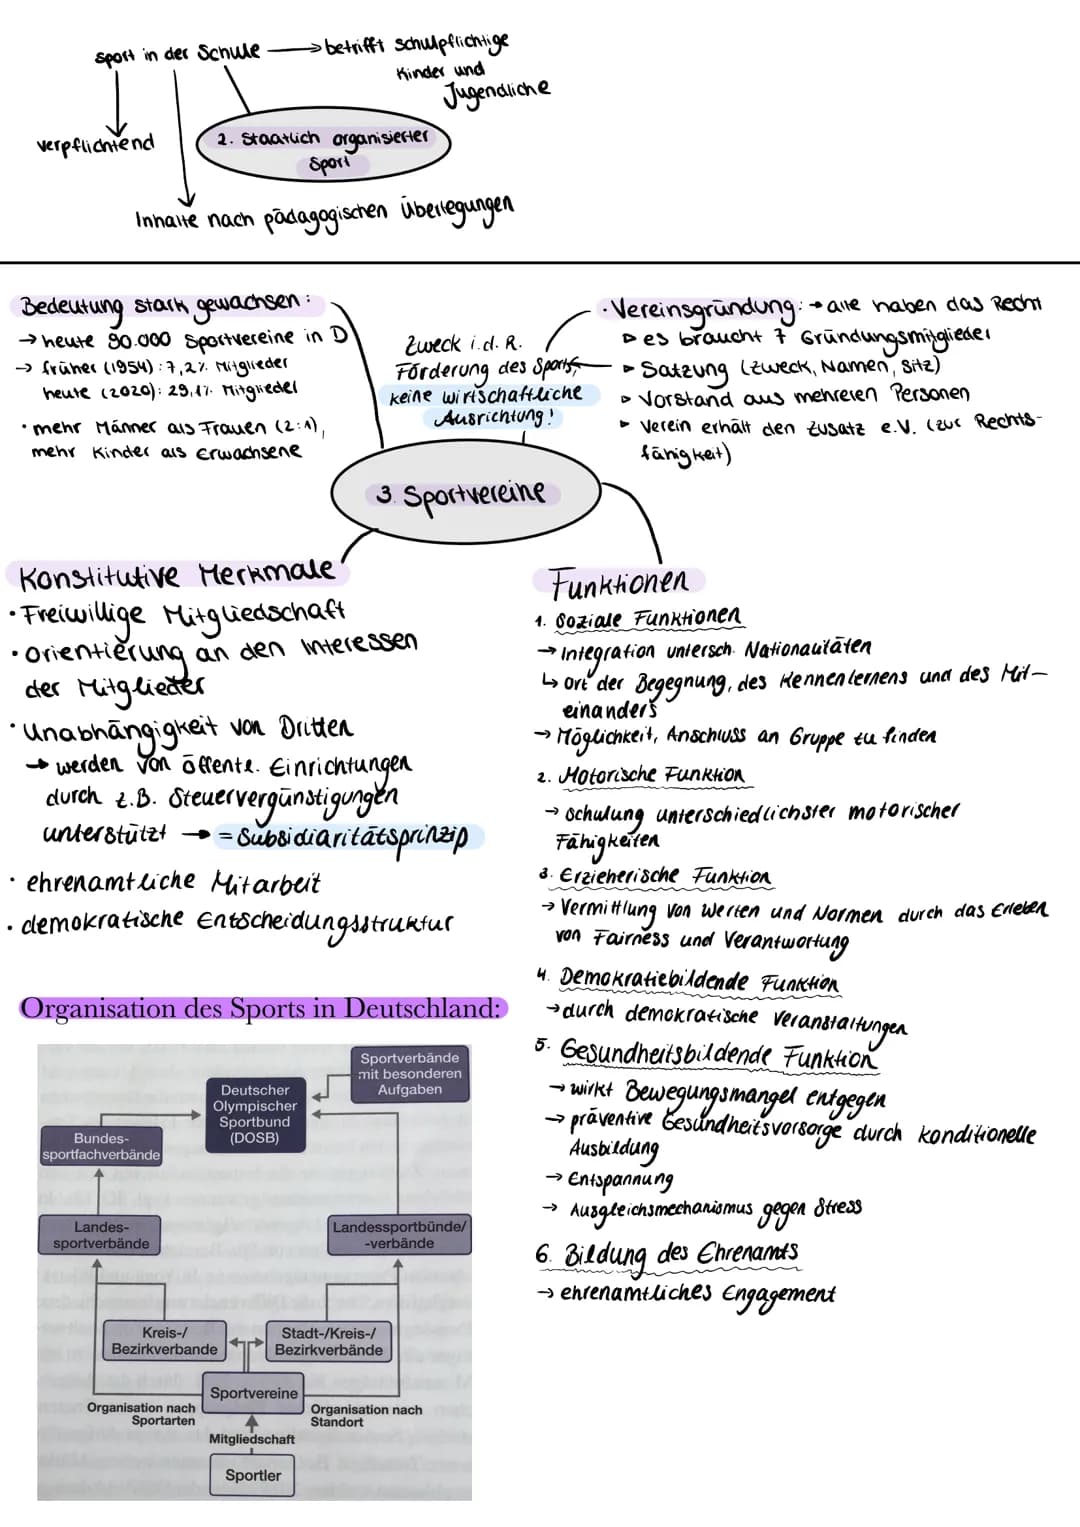 sport in der Schule → betrifft schulpflichtige
Kinder und
Jugendliche
verpflichtend
2. Staatlich organisierter
Sport
Inhalte nach pädagogischen Überlegungen
Bedeutung stark gewachsen:
→ heute 90.000 Sportvereine in D
→ früher (1954): 7,2% Mitglieder
heute (2020): 29,1% Mitglieder
• mehr Männer als Frauen (2:1),
mehr Kinder als Erwachsene
Zweck i.d.R.
Förderung des Sports,
keine wirtschaftliche
Ausrichtung!
• Vereinsgründung: → alle haben das Recht
▹ es braucht 7 Gründungsmitglieder
▹ Satzung (Zweck, Namen, Sitz)
▹ Vorstand aus mehreren Personen
▹ Verein erhält den Zusatz e.V. (zur Rechts-
fähigkeit)
3. Sportvereine
Konstitutive Merkmale
• Freiwillige Mitgliedschaft
• orientierung an den Interessen
der Mitglieder
• Unabhängigkeit von Dritten
→ werden von öffentl. Einrichtungen
durch z.B. Steuervergünstigungen
unterstützt → = Subsidiaritätsprinzip
• ehrenamtliche Mitarbeit
• demokratische Entscheidungsstruktur
Funktionen
1. Soziale Funktionen
→ Integration untersch. Nationalitäten
↳ ort der Begegnung, des Kennenlernens und des Mit-
einanders
→ Möglichkeit, Anschluss an Gruppe zu finden
2. Motorische Funktion
→ Schulung unterschiedlichster motorischer
Fähigkeiten
3. Erzieherische Funktion
→ Vermittlung von Werten und Normen durch das Erleben
von Fairness und Verantwortung
4. Demokratiebildende Funktion
→ durch demokratische Veranstaltungen
5. Gesundheitsbildende Funktion
→ wirkt Bewegungsmangel entgegen
→ präventive Gesundheitsvorsorge durch konditionelle
Ausbildung
→ Entspannung
→ Ausgleichsmechanismus gegen Stress
6. Bildung des Ehrenamts
→ ehrenamtliches Engagement
Organisation des Sports in Deutschland:
Sportverbände
mit besonderen
Aufgaben
Deutscher
Olympischer
Sportbund
(DOSB)
Bundes-
sportfachverbände
Landes-
sportverbände
Landessportbünde/
-verbände
Kreis-/
Bezirkverbande
Stadt-/Kreis-/
Bezirkverbände
Sportvereine
Organisation nach
Sportarten
Organisation nach
Standort
Mitgliedschaft
Sportler